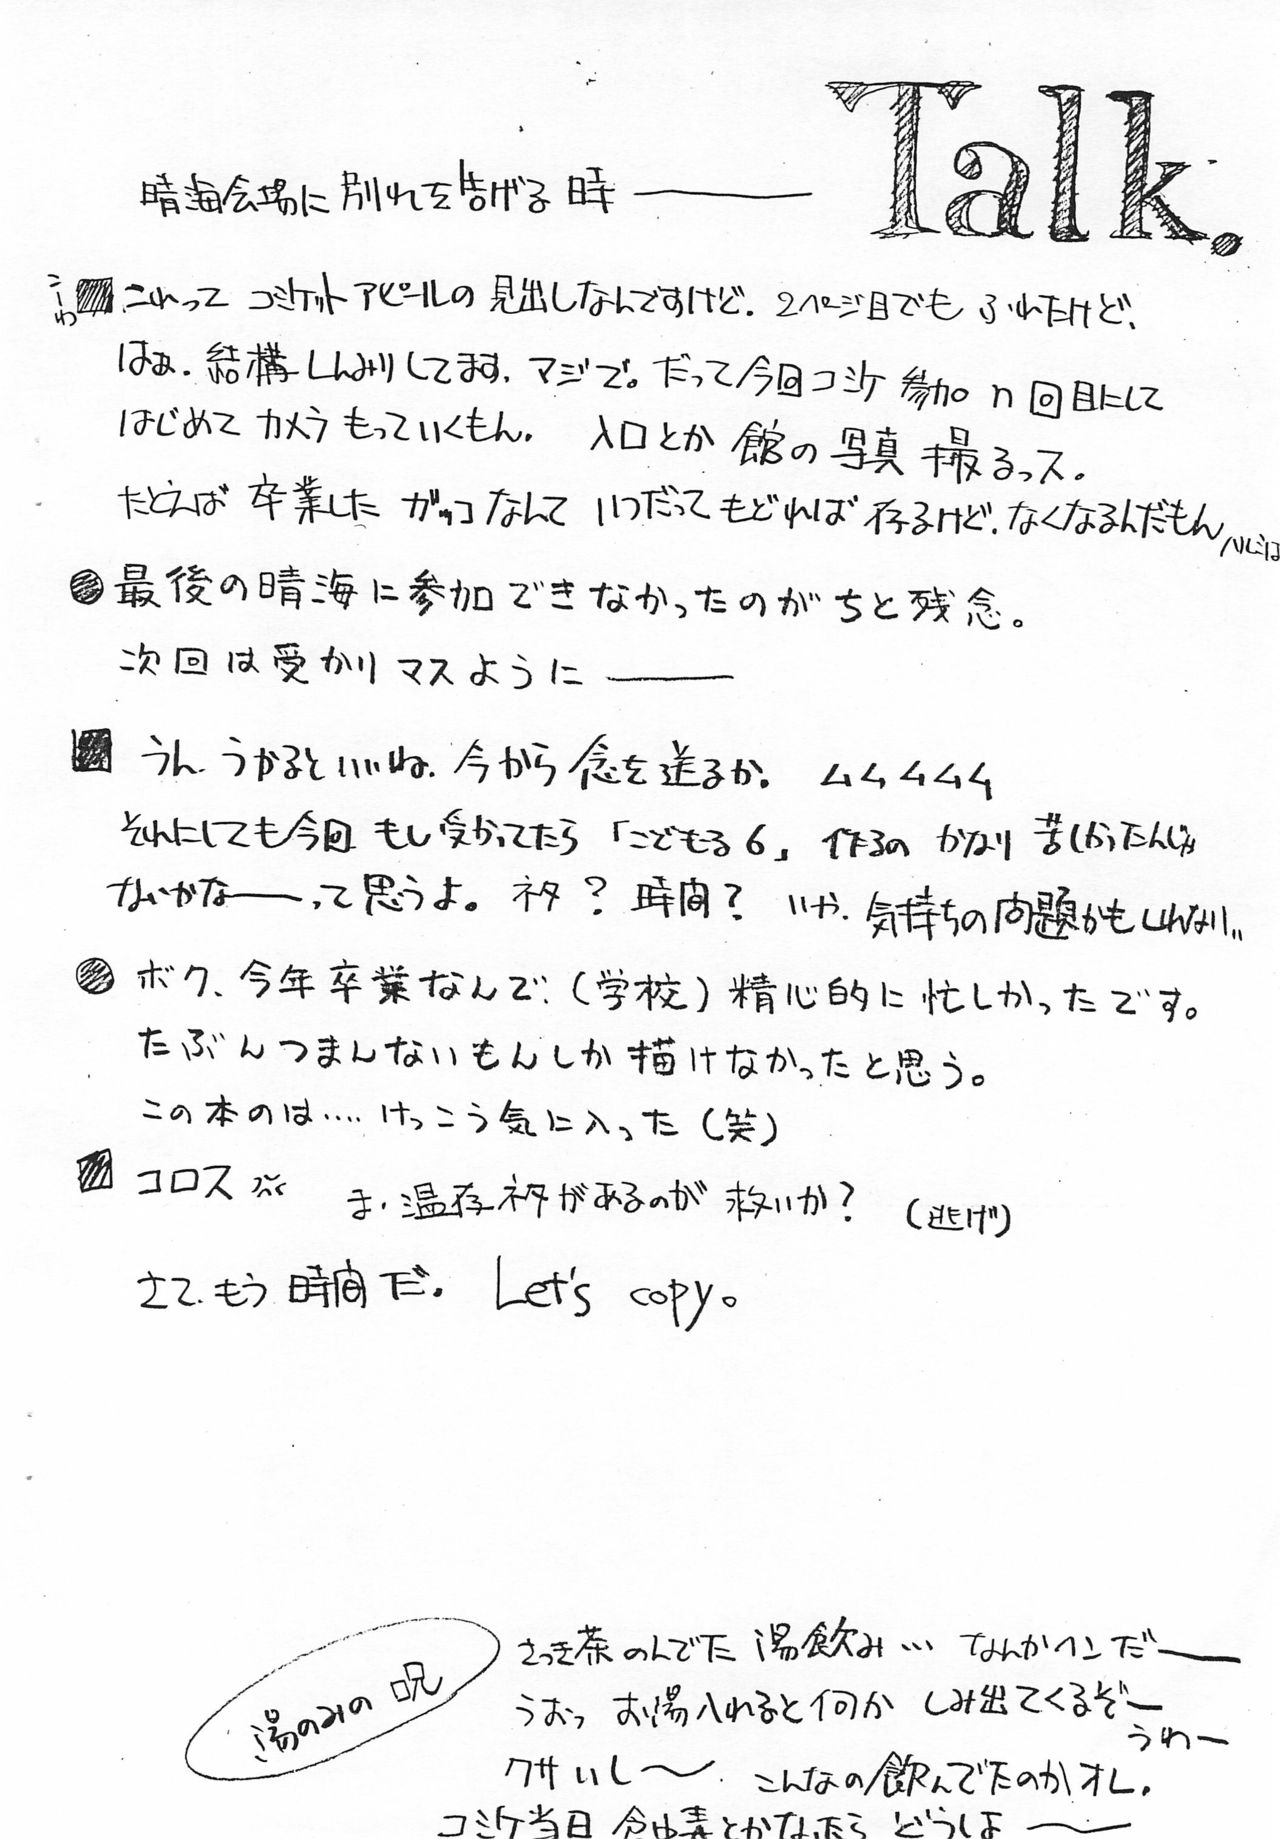 Talk.
晴海会場に別れを告げる時――
こーわ
これって コミケットアピールの 見出しなんですけど. 2ページ目でも ふれたけど、
はぁ. 結構しんみりしてます. マジで。だって今回コミケ 参加 n回目にして
はじめて カメラもっていくもん. 入口とか 館の写真 撮るっス。
たとえば 卒業した ガッコなんて いつだってもどれば 存るけど. なくなるんだもん ハルミは
最後の晴海に参加できなかったのがちと残念。
次回は受かりマスように――
うん. うかるといいね. 今から 念を送るか. ムムムムム
それにしても今回 もし受かってたら 「こどもる6」 作るの かなり 苦しかったんじゃ
ないかな――って思うよ。 ネタ? 時間? いや. 気持ちの問題かもしれない..
ボク、今年卒業なんで、(学校)精心的に忙しかったです。
たぶんつまんないもんしか描けなかったと思う。
この本のは…. けっこう気に入った(笑)
コロス ま. 温存ネタがあるのが 救いか? (逃げ)
さて. もう時間だ. Let's copy。
湯のみの呪
さっき茶のんでた 湯飲み… なんかヘンだ――
うおっ お湯入れると何か しみ出てくるぞー
うわー
クサいし〜. こんなの飲んでたのかオレ.
コミケ当日 食中毒とかなったら どうしよ〜